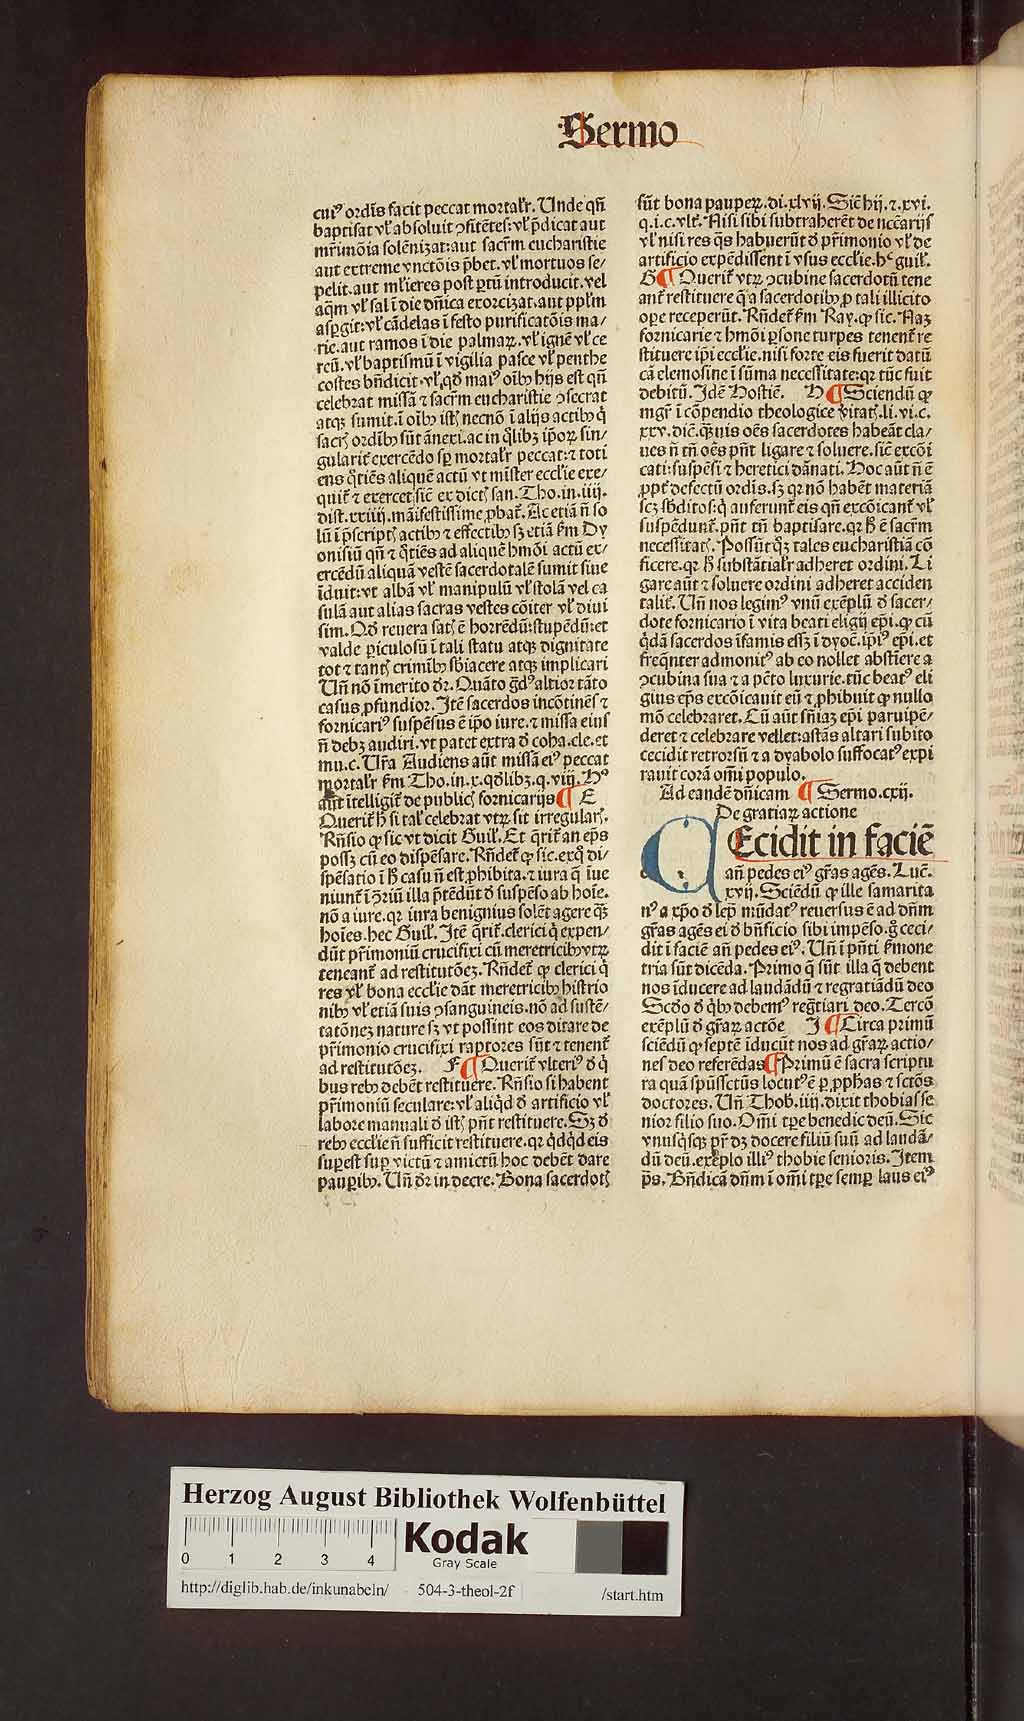 Sermo
cui⁹ ordīs facit peccat mortalr̄. Unde qn̄
baptisat vl̓ absoluit ꝯfitētes: vl̓ p̄dicat aut
mr̄imōia solēnizat: aut sacr̄m eucharistie
aut extreme vnctōis p̄bet. vl̓ mortuos se/
pelit. aut ml̓ieres post ꝑtū introducit. vel
aq̄m vl̓ sal ī die dn̄ica exorcizat. aut ppl̓m
asꝑgit: vl̓ cādelas ī festo purificatōis ma/
rie. aut ramos ī die palmaꝝ. vl̓ ignē vl̓ ce
reū. vl̓ baptismū ī vigilia pasce vl̓ penthe
costes bn̄dicit. vl̓, qd̓ mai⁹ oīb⁹ hijs est qn̄
celebrat missā ⁊ sacr̄m eucharistie ꝯsecrat
atqꝫ sumit. ī oīb⁹ istꝭ necnō ī alijs actib⁹ q̄
sacrꝭ ordīb⁹ sūt ānexi. ac in q̄libꝫ ip̄oꝝ sin/
gularit̓ exercēdo sꝑ mortalr̄ peccat: ⁊ toti
ens q̄tiēs aliquē actū vt mīster eccl̓ie exe/
quit̓ ⁊ exercet sic̄ ex dictꝭ san. Tho. in. iiij.
dist. xxiiij. māifestissime ꝓbat̓. Ac etiā n̄ so
lū ī p̄scriptꝭ actib⁹ ⁊ effectib⁹ sꝫ etiā ẜm Dy
onisiū qn̄ ⁊ q̄tiēs ad aliquē hmōi actū ex/
ercēdū aliquā vestē sacerdotalē sumit siue
īduit: vt albā vl̓ manipulū vl̓ stolā vel ca
sulā aut alias sacras vestes cōiter vl̓ diui
sim. Qd̓ reuera satꝭ ē horrēdū: stupēdū: et
valde ꝑiculosū ī tali statu atqꝫ dignitate
tot ⁊ tantꝭ crimīb⁹ sb̓iacere atqꝫ implicari
Un̄ nō īmerito dr̄. Quāto gͣd⁹ altior tāto
casus ꝓfundior. Itē sacerdos incōtinēs ⁊
fornicari⁹ suspēsus ē ip̄o iure. ⁊ missa eius
n̄ debꝫ audiri. vt patet extra d̓ coha. cle. et
mu. c. Ur̄a Audiens aūt missā ei⁹ peccat
mortalr̄ ẜm Tho. in. x. qd̓libꝫ. q. viij. H⁹
aūt ītelligit̓ de publicꝭ fornicarijs ¶ E
Querit̓ h̄ si tal̓ celebrat vtꝝ sit irregularꝭ.
Rn̄sio ꝙ sic vt dicit Guil̓. Et q̄rit̓ an ep̄s
possꝫ cū eo dispēsare. Rn̄det̓ ꝙ sic. exq̄ di/
spēsatio ī h̄ casu n̄ est ꝓhibita. ⁊ iura q̄ iue
niunt̓ ī ꝯriū illa p̄tēdūt d̓ suspēso ab hoīe.
nō a iure. qꝛ iura benignius solēt agere qͣꝫ
hoīes. hec Guil̓. Itē q̄rit̓. clerici q̄ expen/
dūt pr̄imoniū crucifixi cū meretricib⁹ vtꝝ
teneant̓ ad restitutōeꝫ. Rn̄det̓ ꝙ clerici q̄
res vl̓ bona eccl̓ie dāt meretricib⁹ histrio
nib⁹ vl̓ etiā suis ꝯsanguineis. nō ad sustē/
tatōneꝫ nature sꝫ vt possint eos ditare de
pr̄imonio crucifixi raptores sūt ⁊ tenent̓
ad restitutōeꝫ. F ¶ Querit̓ vlteri⁹ d̓ q̄
bus reb⁹ debēt restituere. Rn̄sio si habent
pr̄imoniū seculare: vl̓ aliqd̓ d̓ artificio vl̓
labore manuali d̓ istꝭ pn̄t restituere. Sꝫ d̓
reb⁹ eccl̓ie n̄ sufficit restituere. qꝛ qd̓qd̓ eis
suꝑest suꝑ victū ⁊ amictū hoc debēt dare
pauꝑib⁹. Un̄ dr̄ in decre. Bona sacerdotꝭ
sūt bona pauꝑeꝝ. di. xlvij. Sic̄ hij. ⁊. xvi.
q. i. c. vlt̓. Nisi sibi subtraherēt de nc̄carijs
vl̓ nisi res q̄s habuerūt d̓ pr̄imonio vl̓ de
artificio expēdissent ī vsus eccl̓ie. hͨ guil̓.
G ¶ Querit̓ vtꝝ ꝯcubine sacerdotū tene
ant̓ restituere q̄ a sacerdotib⁹ ꝓ tali illicito
oꝑe receperūt. Rn̄det̓ ẜm Ray. ꝙ sic. Naꝫ
fornicarie ⁊ hmōi ꝑsone turpes tenent̓ re
stituere ip̄i eccl̓ie. nisi forte eis fuerit datū
cā elemosine ī sūma necessitate: qꝛ tūc fuit
debitū. Idē Hostiē. H ¶ Sciendū ꝙ
mgr̄ ī cōpendio theologice v̓itatꝭ. li. vi. c.
xxv. dic̄. qͣꝫuis oēs sacerdotes habeāt cla/
ues n̄ tn̄ oēs pn̄t ligare ⁊ soluere. sic̄ excōi
cati: suspēsi ⁊ heretici dānati. Hoc aūt n̄ ē
ꝓpt̓ defectū ordīs. sꝫ qꝛ nō habēt materiā
scꝫ sb̓ditos: q̄ auferunt̓ eis qn̄ excōicant̓ vl̓
suspēdunt̓. pn̄t tn̄ baptisare. qꝛ h̄ ē sacr̄m
necessitatꝭ. Possūt qꝫ tales eucharistiā cō
ficere. qꝛ h̄ substātialr̄ adheret ordini. Li
gare aūt ⁊ soluere ordini adheret acciden
talit̓. Un̄ nos legim⁹ vnū exēplū d̓ sacer/
dote fornicario ī vita beati eligij ep̄i. ꝙ cū
q̄dā sacerdos īfamis essꝫ ī dyoc̄. ip̄i⁹ ep̄i. et
freq̄nter admonit⁹ ab eo nollet abstīere a
ꝯcubina sua ⁊ a pc̄to luxurie. tūc beat⁹ eli
gius ep̄s excōicauit eū ⁊ ꝓhibuit ꝙ nullo
mō celebraret. Cū aūt sn̄iaꝫ ep̄i paruipē/
deret ⁊ celebrare vellet: astās altari subito
cecidit retrorsū ⁊ a dyabolo suffocat⁹ expi
rauit corā om̄i populo.
Ad eandē dn̄icam ¶ Sermo. cxij.
De gratiaꝝ actione
CEcidit in faciē
an̄ pedes ei⁹ gr̄as agēs. Luc̄.
xvij. Sciēdū ꝙ ille samarita
n⁹ a xp̄o d̓ lep̄ mūdat⁹ reuersus ē ad dn̄m
gr̄as agēs ei d̓ bn̄ficio sibi impēso. g̊ ceci/
dit ī faciē an̄ pedes ei⁹. Un̄ ī pn̄ti ẜmone
tria sūt dicēda. Primo q̄ sūt illa q̄ debent
nos īducere ad laudādū ⁊ regratiādū deo
Scd̓o d̓ q̄b⁹ debem⁹ regr̄tiari deo. Tercō
exēplū d̓ gr̄aꝝ actōe I ¶ Circa primū
sciēdū ꝙ septē īducūt nos ad gr̄aꝝ actio/
nes deo referēdas ¶ Primū ē sacra scriptu
ra quā spūssctūs locut⁹ ē ꝑ ꝓphās ⁊ sctōs
doctores. Un̄ Thob. iiij. dixit thobias se
nior filio suo. Om̄i tꝑe benedic deū. Sic
vnusq̄sqꝫ pr̄ dꝫ docere filiū suū ad laudā/
dū deū. exēplo illi⁹ thobie senioris. Item
p̄s. Bn̄dicā dn̄m ī om̄i tꝑe semꝑ laus ei⁹
Herzog August Bibliothek Wolfenbüttel
0 1 2 3 4
Kodak
Gray Scale
http://diglib.hab.de/inkunabeln/ 504-3-theol-2f /start.htm